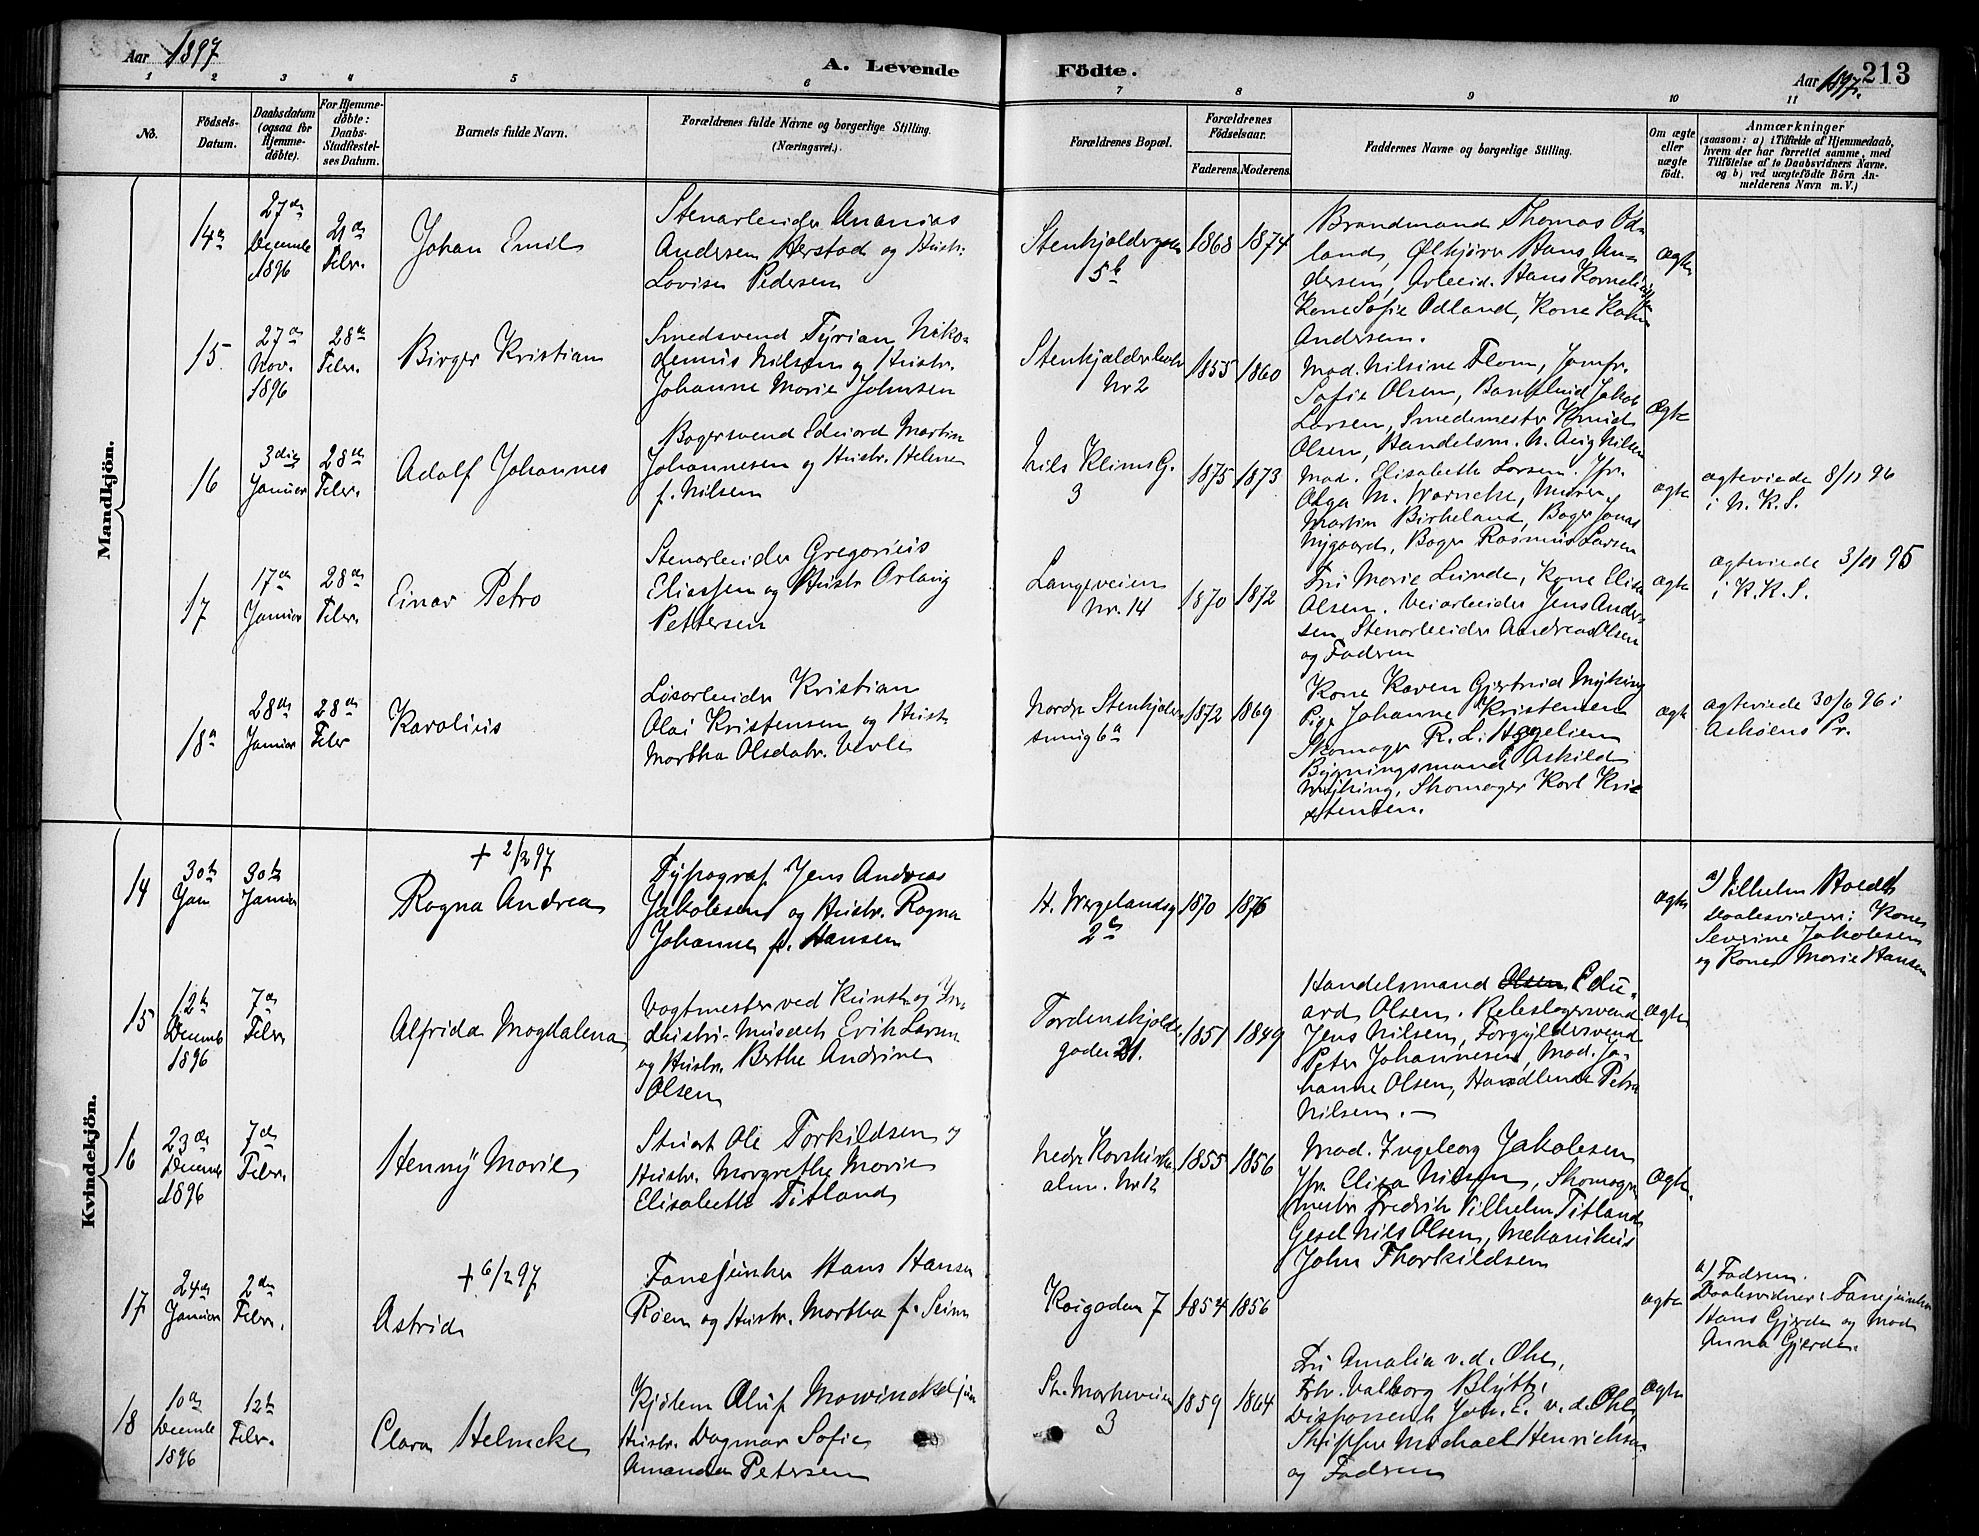 Aar 1897
A. Levende
Födte.
Aar 1897.
213
1 2 3 4 5 6 7 8 9 10 11
No.
Födsels-
Datum.
Daabsdatum
(ogsaa for
Hjemme-
döbte).
For Hjemme-
döbte:
Daabs-
Stadfæstel-
ses Datum.
Barnets fulde Navn.
Forældrenes fulde Navne og borgerlige Stilling.
(Næringsvei.)
Forældrenes Bopæl.
Forældrenes
Födselsaar.
Faderens. Moderens.
Faddernes Navne og borgerlige Stilling.
Om ægte
eller
uægte
födt.
Anmærkninger
(saasom: a) i Tilfælde af Hjemmedaab,
hvem der har forrettet samme, med
Tilföielse af to Daabsvidners Navne.
og b) ved uægtefödte Börn An-
melderens Navn m.V.)
Mandkjön.
14
27de
Decembr
1896
21de
Febr.
Johan Emil
Stenarbeider Ananias
Andersen Herstad og Hustr.
Lovise Pedersen
5b
1868
1874
Brandmand Thomas Od-
land, Ølkjører Hans An-
dersen, Arbeid. Hans Kornelius
Kone Sofie Odland, Kone
Andersen.
ægte
15
27de
Nov.
1896
28de
Febr.
Birger Kristian
Smedsvend Tyrian Niko-
demus Nilsen og Hustr.
Johanne Marie Johnsen
Nr 2
1855
1860
Mad. Nilsine Flom, Jomfr.
Sofie Olsen, Jakob
Larsen, Smedemester Knud
Olsen, Handelsm. N. Aug Nilsen
Ægte
16
3die
Januar
28de
Febr.
Adolf Johannes
Bagersvend Eduard Martin
Johannesen og Hustr. Helene
f. Nilsen
Nils Klims G.
3
1875
1873
Mad. Elisabeth Larsen. Jfr.
Olga M. Warncke, Murer
Martin Birkeland, Bager Jonas
Nygaard, Bager Rasmus Larsen
ægte
ægteviede 8/11 96
i N. K. S.
17
17de
Januar
28de
Febr.
Einar Petro
Stenarbeider Gregorius
Eliassen og Hustr
Pettersen
Langeveien
Nr. 14
1870
1872
Fru Marie Lunde, Kone Elisa
Olsen. Veiarbeider Jens Ander-
sen, Stenarbeider Andreas Olsen
og Fadren
ægte
ægteviede 3/11 95
i K. K. S.
18
28de
Januar
28de
Febr
Karolius
Løsarbeider Kristian
Olai Kristensen og Hustr
Martha Olsdatr.
Nordre Stenkjelder-
smug 6a
1872
1869
Kone Karen Gjertrud Myking
Pige Johanne Kristensen
Skomager R. L.
Bygningsmand Askild
Myking, Skomager Karl Kri-
stensen.
ægte
ægteviede 30/6 96 i
Askøens Pr.
Kvindekjön.
14
30te
Jan
30te
Januar
+ 2/2 97
Ragna Andrea
Typograf Jens Andreas
Jakobsen og Hustr. Ragna
Johanne f. Hansen
H. Wergelandsg
1870
1876
ægte
a) Vilhelm
Daabsvidner: Kone
Severine Jakobsen
og Kone Marie Hansen
15
12te
Decemb
1896
7de
Febr
Alfrida Magdalena
Vagtmester ved Kunst- og In-
dustri-Museet Erik Larsen
og Hustr. Berthe Andrine
Olsen
Tordenskjolds-
gaden 21.
1851
1849
Handelsmand Olsen Edu-
ard Olsen. Rebslagersvend
Jens Nilsen, Forgyldersvend
Peter Johannesen, Mad. Jo-
hanne Olsen, Handlende Petra
Nilsen. —
Ægte
16
23de
Decembr
1896
7de
Febr.
Henny Marie
Stuert Ole Torkildsen og
Hustr. Margrethe Marie
Elisabeth Titland
Nedre Korskirke
alm. Nr 12
1855
1856
Mad. Ingeborg Jakobsen
Jfr. Eliza Nilsen, Skomager
mester Fredrik Vilhelm Titland
Gesel Nils Olsen, Mekanikus
John Thorkildsen
Ægte.
17
24de
Januar
2den
Febr.
+ 6/2 97
Astrid
Fanejunker Hans Hansen
Røen og Hustr. Martha f. Seim
Kaigaden 7
1854
1856
ægte
a) Fadren.
Daabsvidner: Fanejunker
Hans Gjerde og Mad
Anna Gjerde.
18
10de
Decembr
1896
12te
Febr.
Clara Helmeke
Kjøbm Oluf Mowinckel jun
Hustr. Dagmar Sofie
Amanda Petersen
St. Markeveien
3
1859
1864
Fru Amalia v. d. Ohe,
Frk. Valborg Blytt,
Disponent Joh. E. v. d. Ohe,
Skipper Michael Henrichsen
og Fadren
Ægte